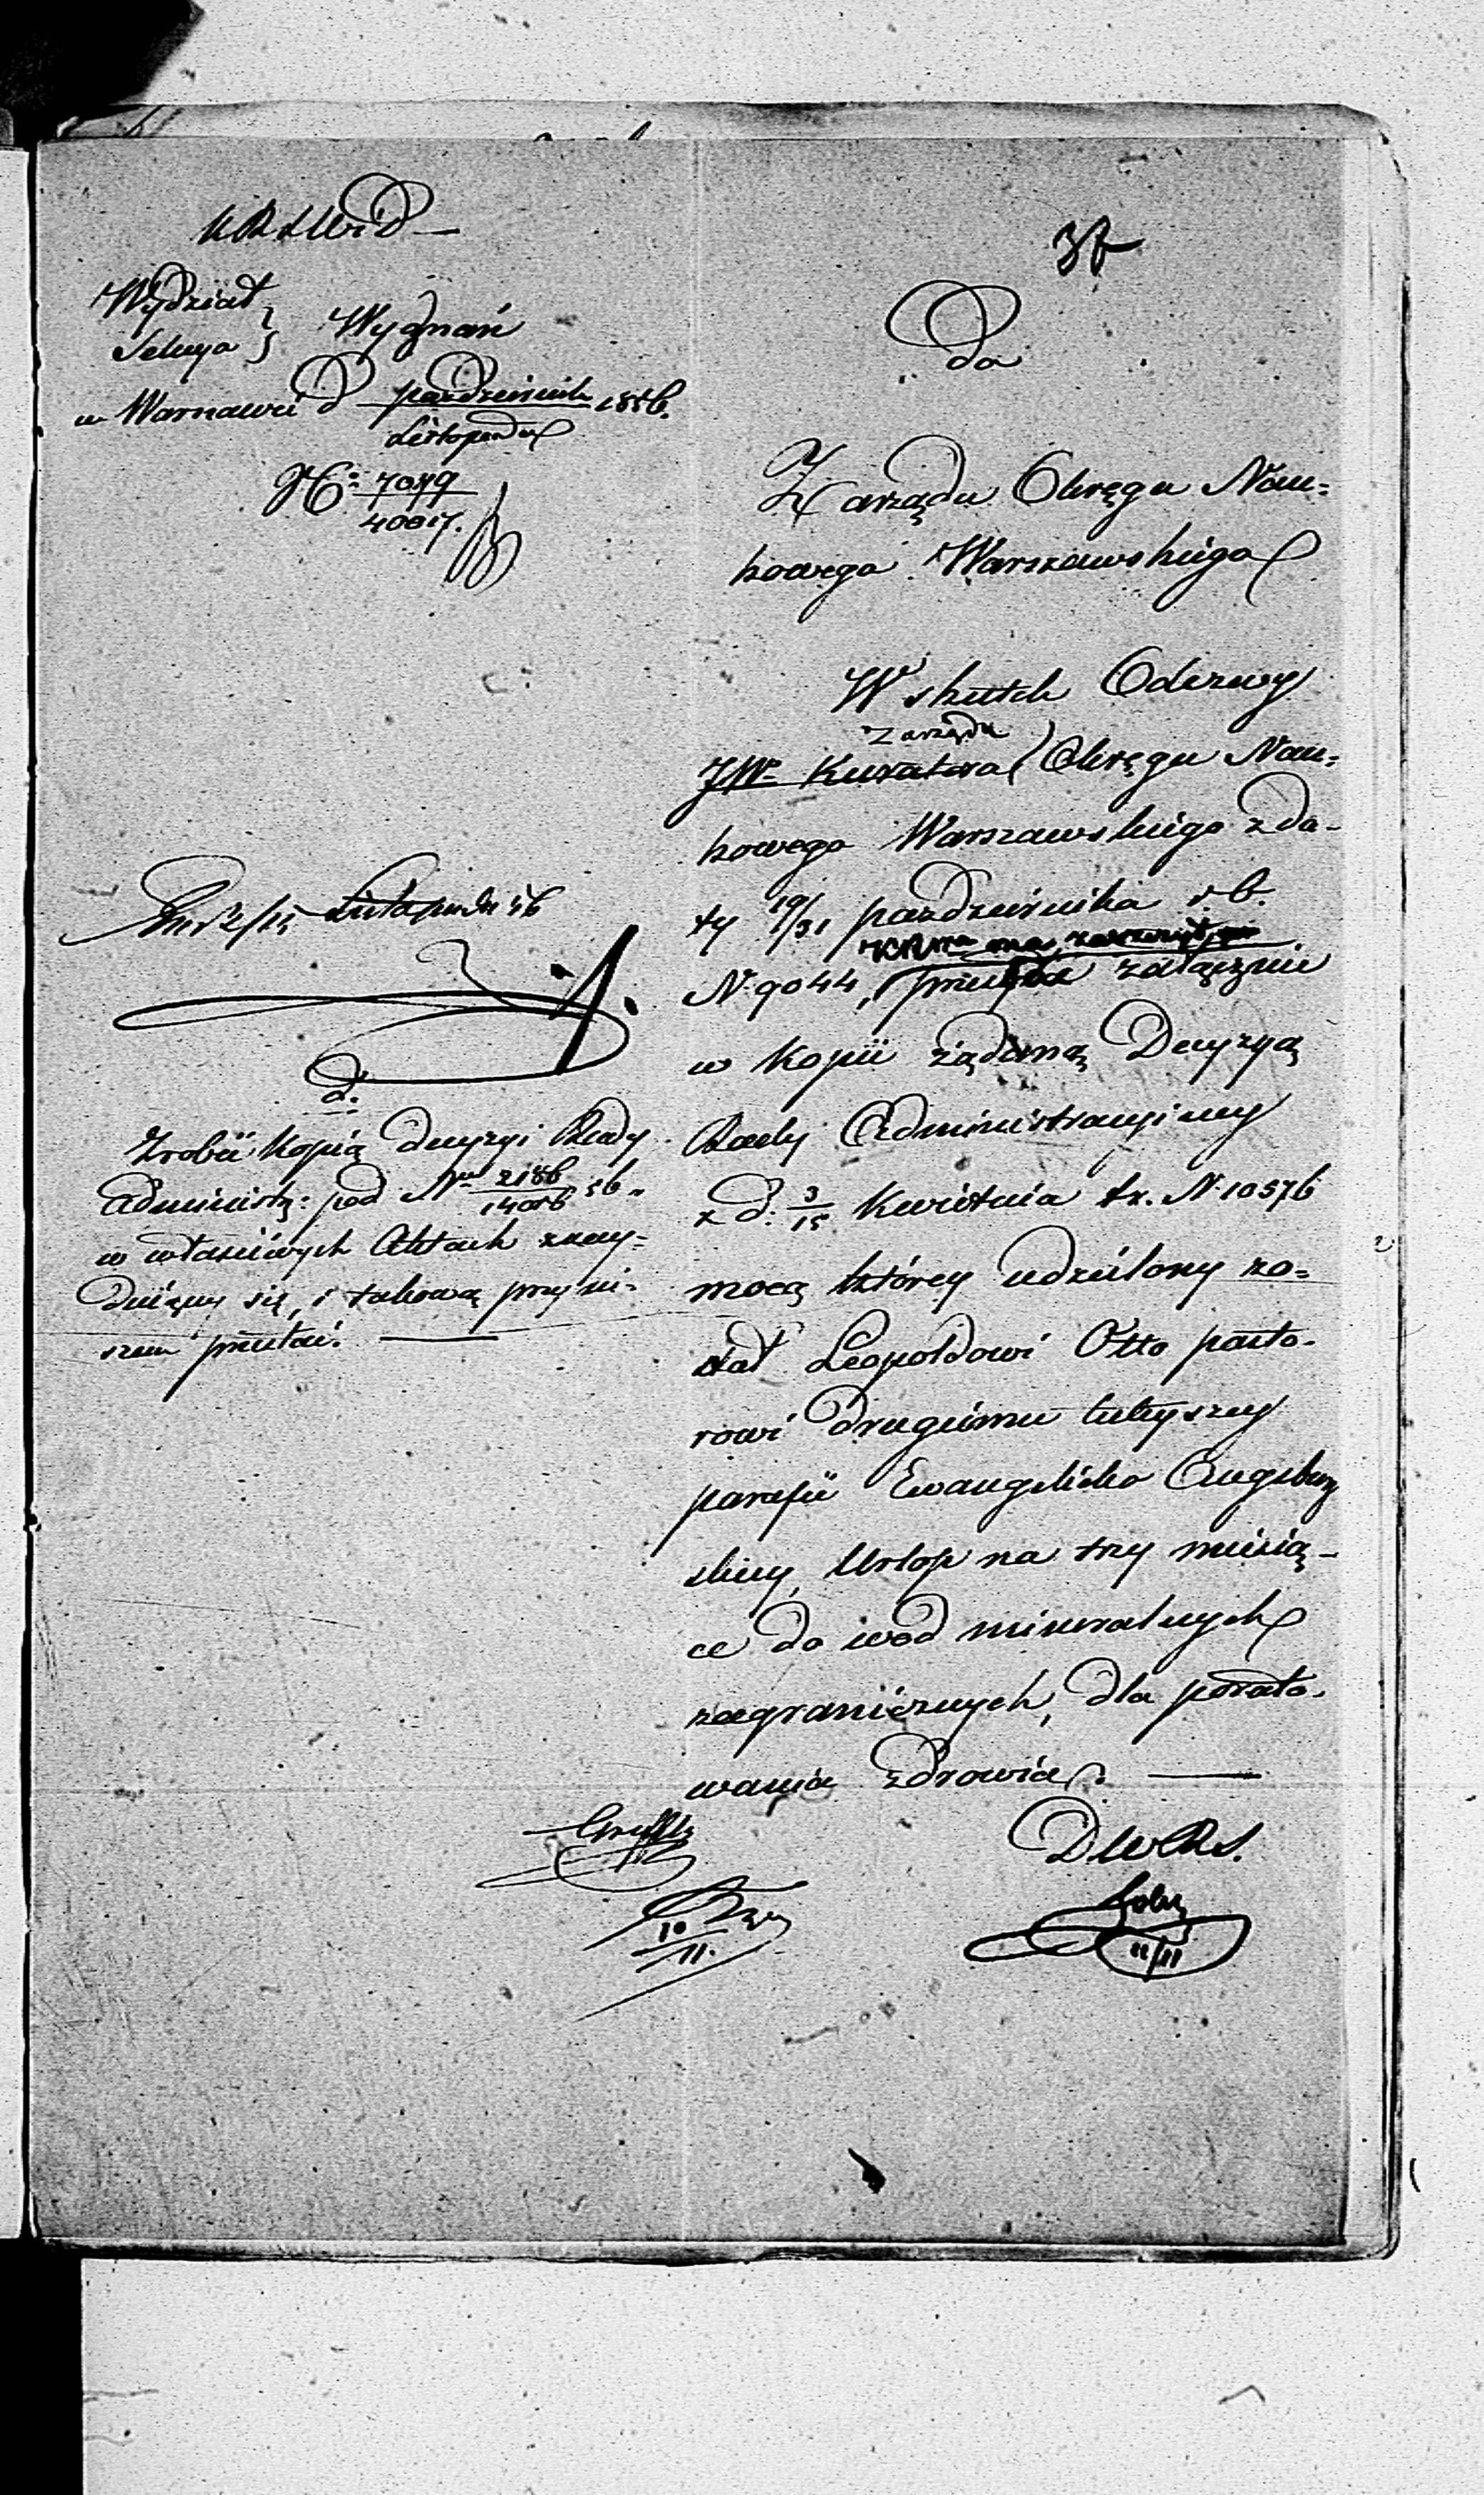 KRSWiD —
Wydział
Sekcya } Wyznań
w Warszawie d październik 1856.
Listopada
No: 7049
40017.
37
Do
Zarządu Okręgu Nau=
kowego Warszawskiego
W skutek Odezwy
Zarządu
JW. Kuratora Okręgu Nau=
kowego Warszawskiego z da-
ty 19/31 października r. b.
N. 9044, przesyła załącznie
w kopii żądaną Decyzyą
Rady Administracyjney
z d. 3/15 Kwietnia t.r. N. 10576
mocą którey udzielony zo=
stał Leopoldowi Otto pasto-
rowi drugiemu tuteyszey
parafii Ewangelicko Augsbur
skiey, Urlop na trzy miesią-
ce do wód mineralnych
zagranicznych, dla porato-
wania zdrowia. —
DWRS.
11/11
10
11.
Listopada 56
d.
Zrobić kopią decyzyi Rady
Administr: pod Nr 2186
14056 56.
w właściwych Aktach znay=
duiącey się, i takową przy ni-
szem przesłać. —